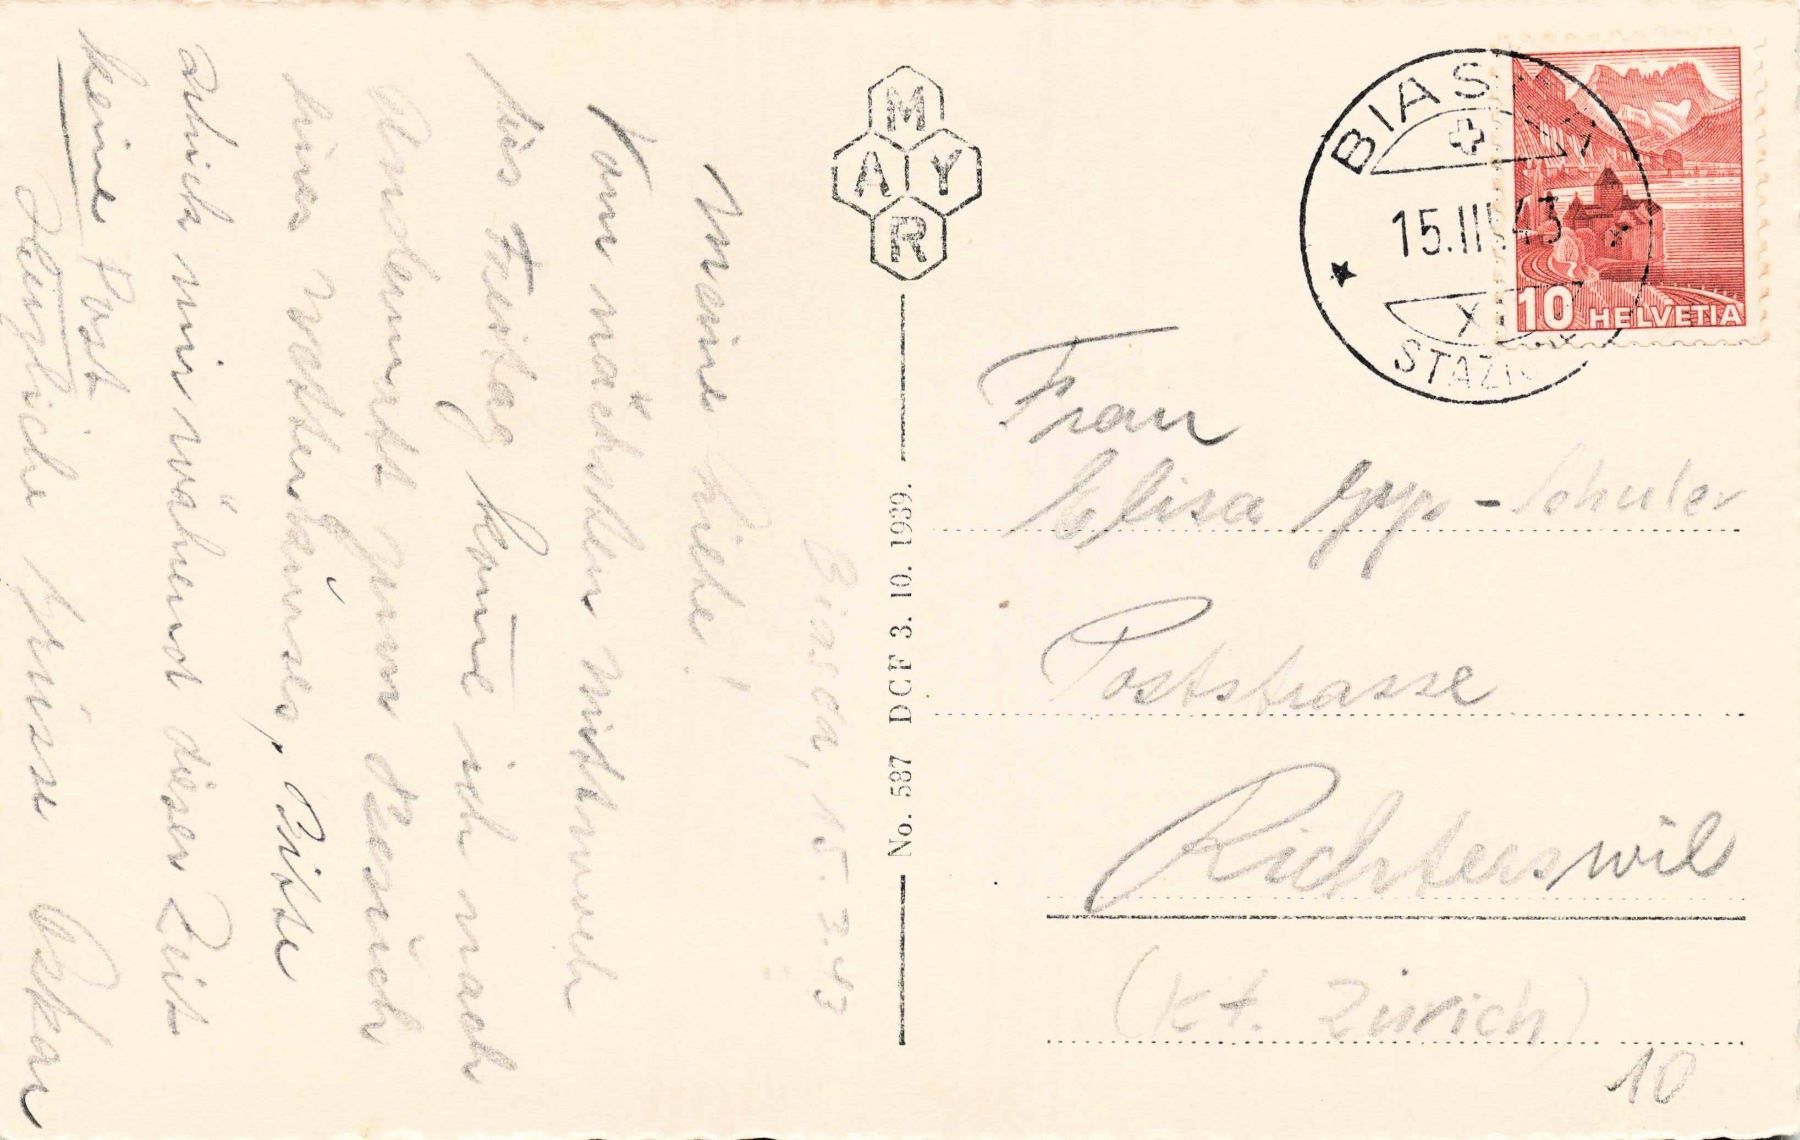 Biasca, 15.3.43
Meine Liebe!
Vom nächsten Mittwoch
bis Freitag kome ich nach
Andermatt zum Besuch
eines Wetterkurses, Bitte
schick mir während dieser Zeit
keine Post
Herzliche Grüsse Oskar
M
A Y
R
No. 587 DCF 3. 10. 1939.
BIASCA
15.III.43
X
STAZIONE
10 HELVETIA
Frau
Elisa Gyr-Schuler
Poststrasse
Richterswil
(Kt. Zürich)
10